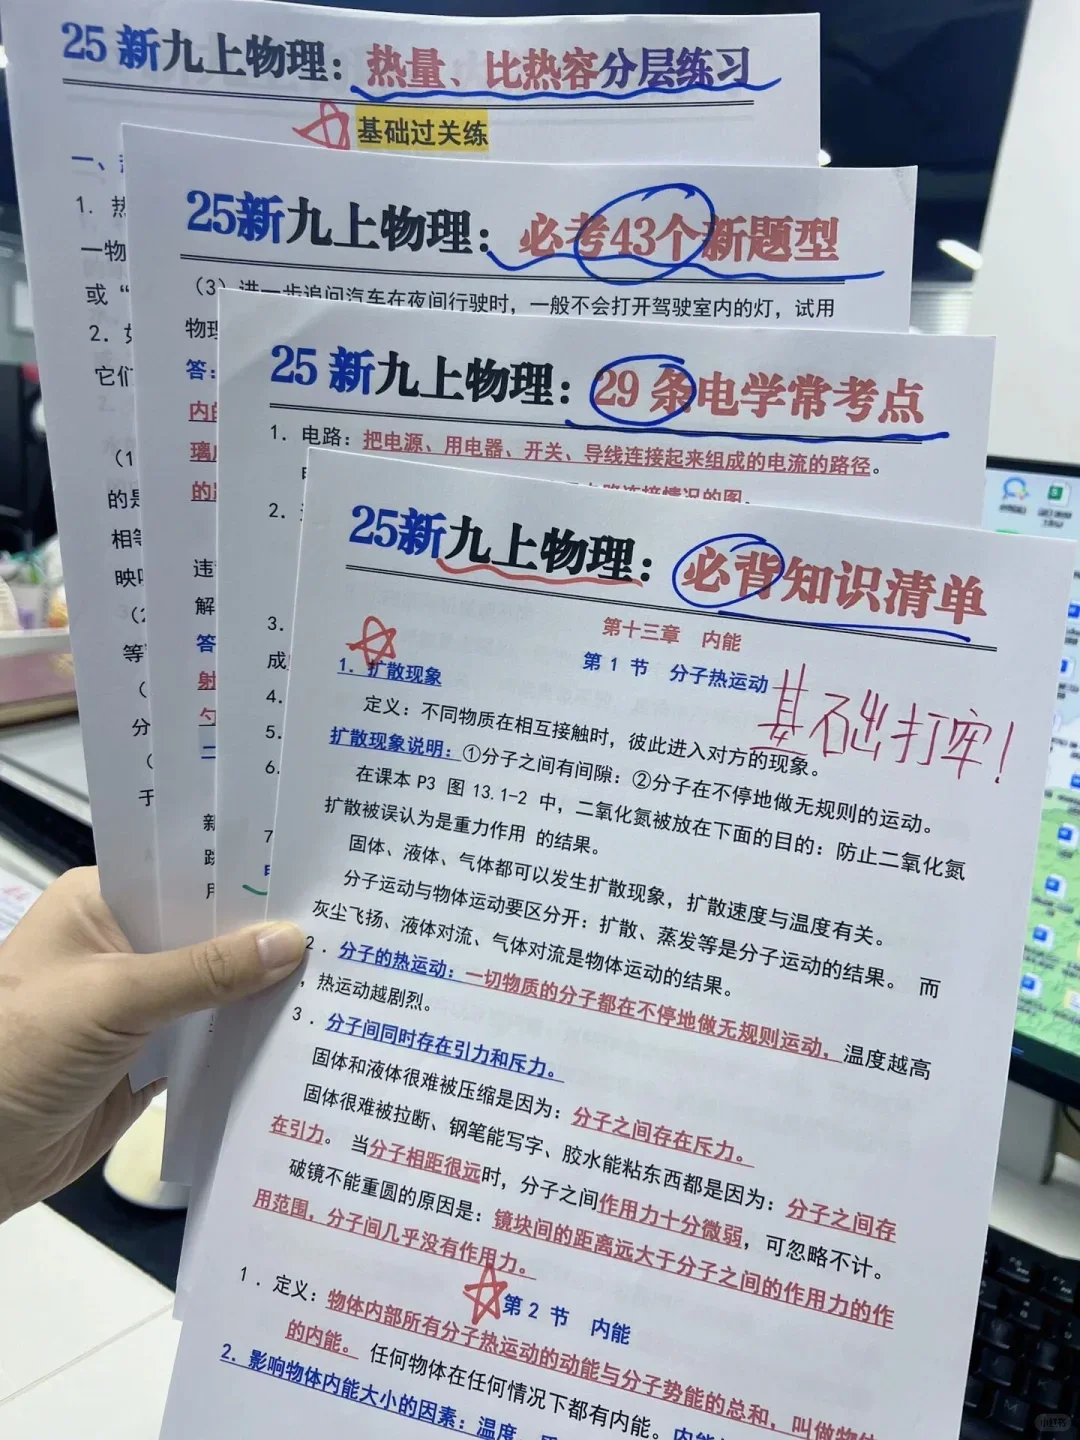 25 新九上物理：热量、比热容分层练习
基础过关练
一、
1. 热
一物
或“
2. 如
它们
(1
的是
相等
映
(2
等
(
分
(
于
25新九上物理：必考43个新题型
（3）进一步追问汽车在夜间行驶时，一般不会打开驾驶室内的灯，试用
物理
答：
内的
璃
的
违
解
答
射
勺
二
新
跳
用
25 新九上物理：29 条电学常考点
1. 电路：把电源、用电器、开关、导线连接起来组成的电流的路径。
路连接情况的图。
2.
3.
成
4.
5.
6.
7
25新九上物理：必背知识清单
第十三章 内能
第 1 节 分子热运动
基础打牢！
1. 扩散现象
定义：不同物质在相互接触时，彼此进入对方的现象。
扩散现象说明：①分子之间有间隙：②分子在不停地做无规则的运动。
在课本 P3 图 13.1-2 中，二氧化氮被放在下面的目的：防止二氧化氮
扩散被误认为是重力作用 的结果。
固体、液体、气体都可以发生扩散现象，扩散速度与温度有关。
分子运动与物体运动要区分开：扩散、蒸发等是分子运动的结果。 而
灰尘飞扬、液体对流、气体对流是物体运动的结果。
2 . 分子的热运动：一切物质的分子都在不停地做无规则运动，温度越高
，热运动越剧烈。
3 . 分子间同时存在引力和斥力。
固体和液体很难被压缩是因为：分子之间存在斥力。
固体很难被拉断、钢笔能写字、胶水能粘东西都是因为：分子之间存
在引力。 当分子相距很远时，分子之间作用力十分微弱，可忽略不计。
破镜不能重圆的原因是：镜块间的距离远大于分子之间的作用力的作
用范围，分子间几乎没有作用力。
第 2 节 内能
1 . 定义：物体内部所有分子热运动的动能与分子势能的总和，叫做物体
的内能。 任何物体在任何情况下都有内能。
2. 影响物体内能大小的因素：温度、
小红书